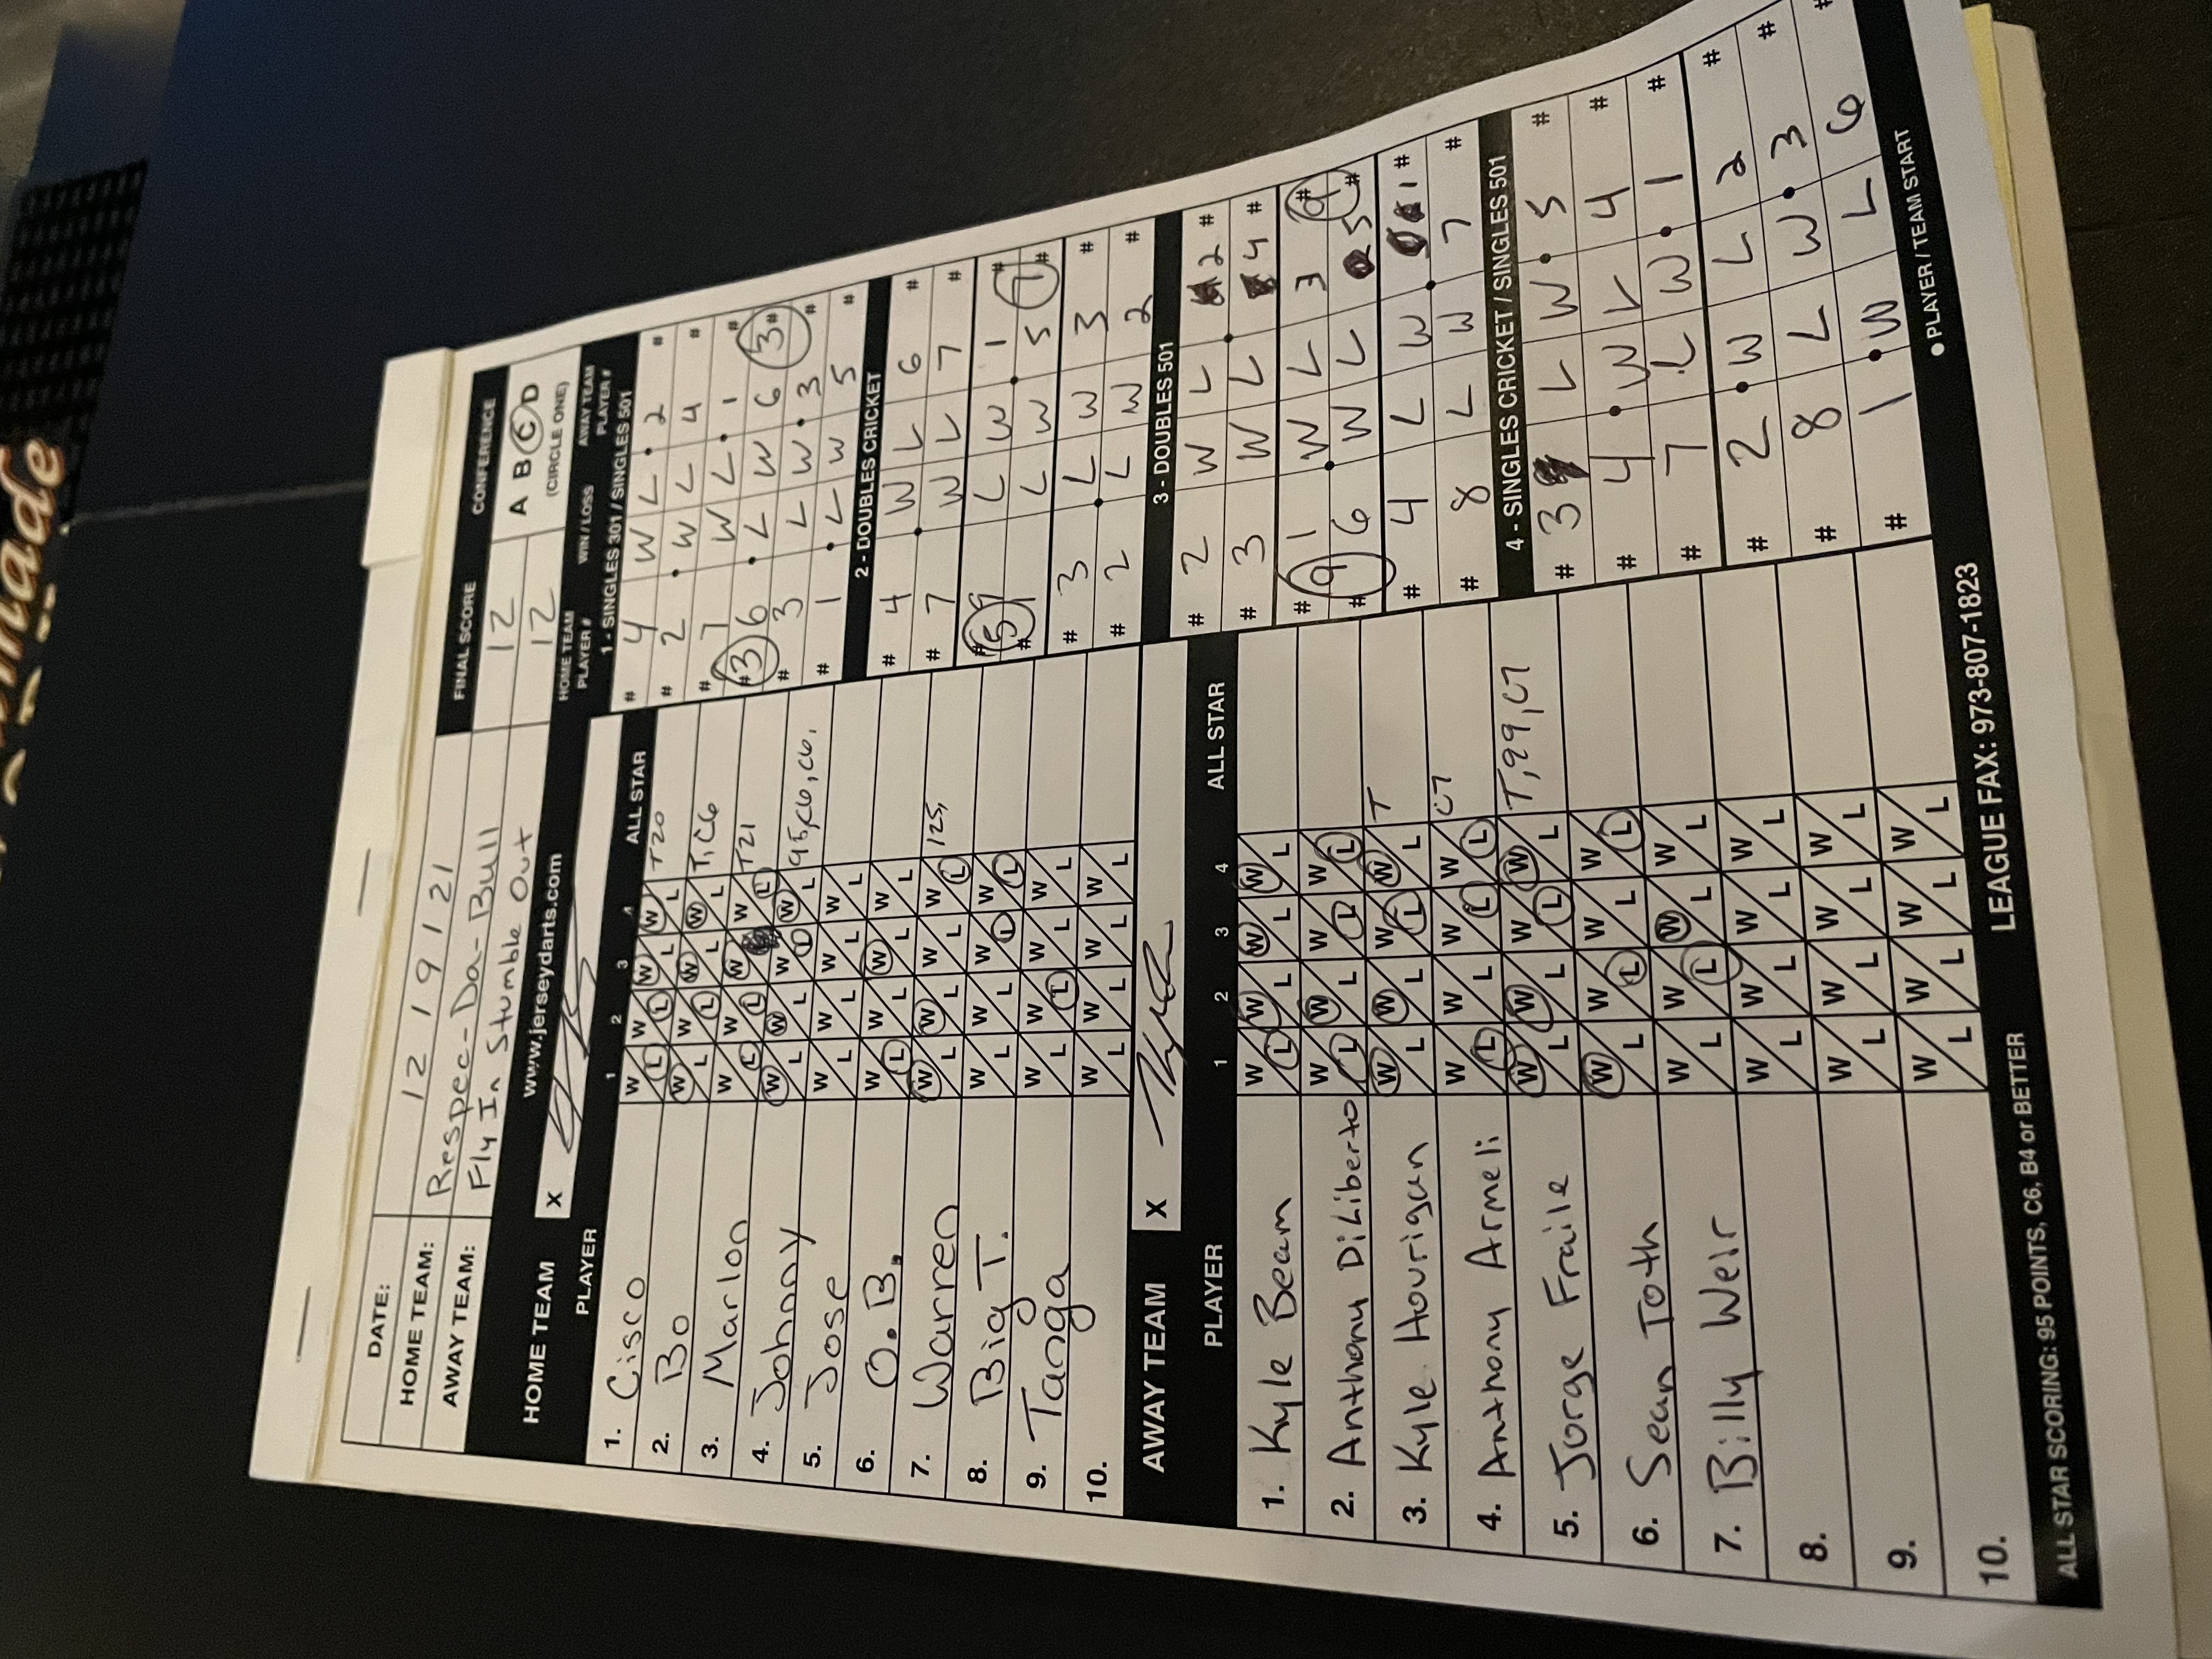 made
DATE: 12 19 121
HOME TEAM: Respec-Da-Bull
AWAY TEAM: Fly In Stumble Out
FINAL SCORE
12
12
CONFERENCE
A B C D
(CIRCLE ONE)
HOME TEAM
www.jerseydarts.com
X
PLAYER 1 2 3 4 ALL STAR
1. Cisco W L W L W L W L T20
2. Bo W L W L W L W L T, C6
3. Marlon W L W L W L W L T21
4. Johnny W L W L W W L 95, C6, C6,
5. Jose W L W L W L W L
6. O.B. W L W L W L W L
7. Warren W L W L W L W L 125,
8. Big T. W L W L W L W L
9. Tanga W L W L W L W L
10. W L W L W L W L
AWAY TEAM
X
PLAYER 1 2 3 4 ALL STAR
1. Kyle Beam W L W L W L W L
2. Anthony DiLiberto W L W L W L W L
3. Kyle Hourigan W L W L W L W L T
4. Anthony Armeli W L W L W L W L C7
5. Jorge Fraile W L W L W L W L T, 99, C7
6. Sean Toth W L W L W L W L
7. Billy Weir W L W L W L W L
8. W L W L W L W L
9. W L W L W L W L
10.
HOME TEAM PLAYER # WIN / LOSS AWAY TEAM PLAYER #
1 - SINGLES 301 / SINGLES 501
# 4 W L 2 #
# 2 W L 4 #
# 7 W L 1 #
# 3 6 L W 6 3 #
# 3 L W 3 #
# 1 L W 5 #
2 - DOUBLES CRICKET
# 4 W L 6 #
# 7 W L 7 #
# 5 9 L W 1 #
# 1 L W 5 7 #
# 3 L W 3 #
# 2 L W 2 #
3 - DOUBLES 501
# 2 W L 2 #
# 3 W L 4 #
# 9 1 W L 3 9 #
# 6 W L 5 #
# 4 L W 1 #
# 8 L W 7 #
4 - SINGLES CRICKET / SINGLES 501
# 3 L W 5 #
# 4 W L 4 #
# 7 L W 1 #
# 2 W L 2 #
# 8 L W 3 #
# 1 W L 6 #
● PLAYER / TEAM START
ALL STAR SCORING: 95 POINTS, C6, B4 or BETTER
LEAGUE FAX: 973-807-1823